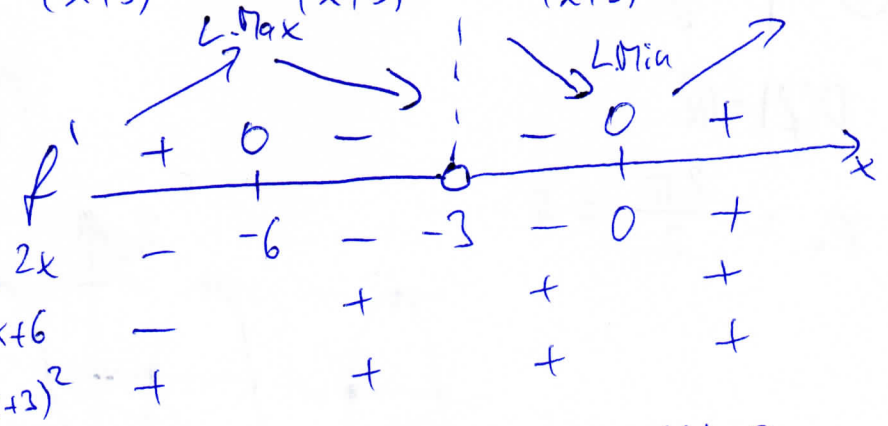 L.Max
L.Min
f' + 0 - - 0 +
x
-6 -3 0
2x - - - +
x+6 - + + +
+3)² + + + +